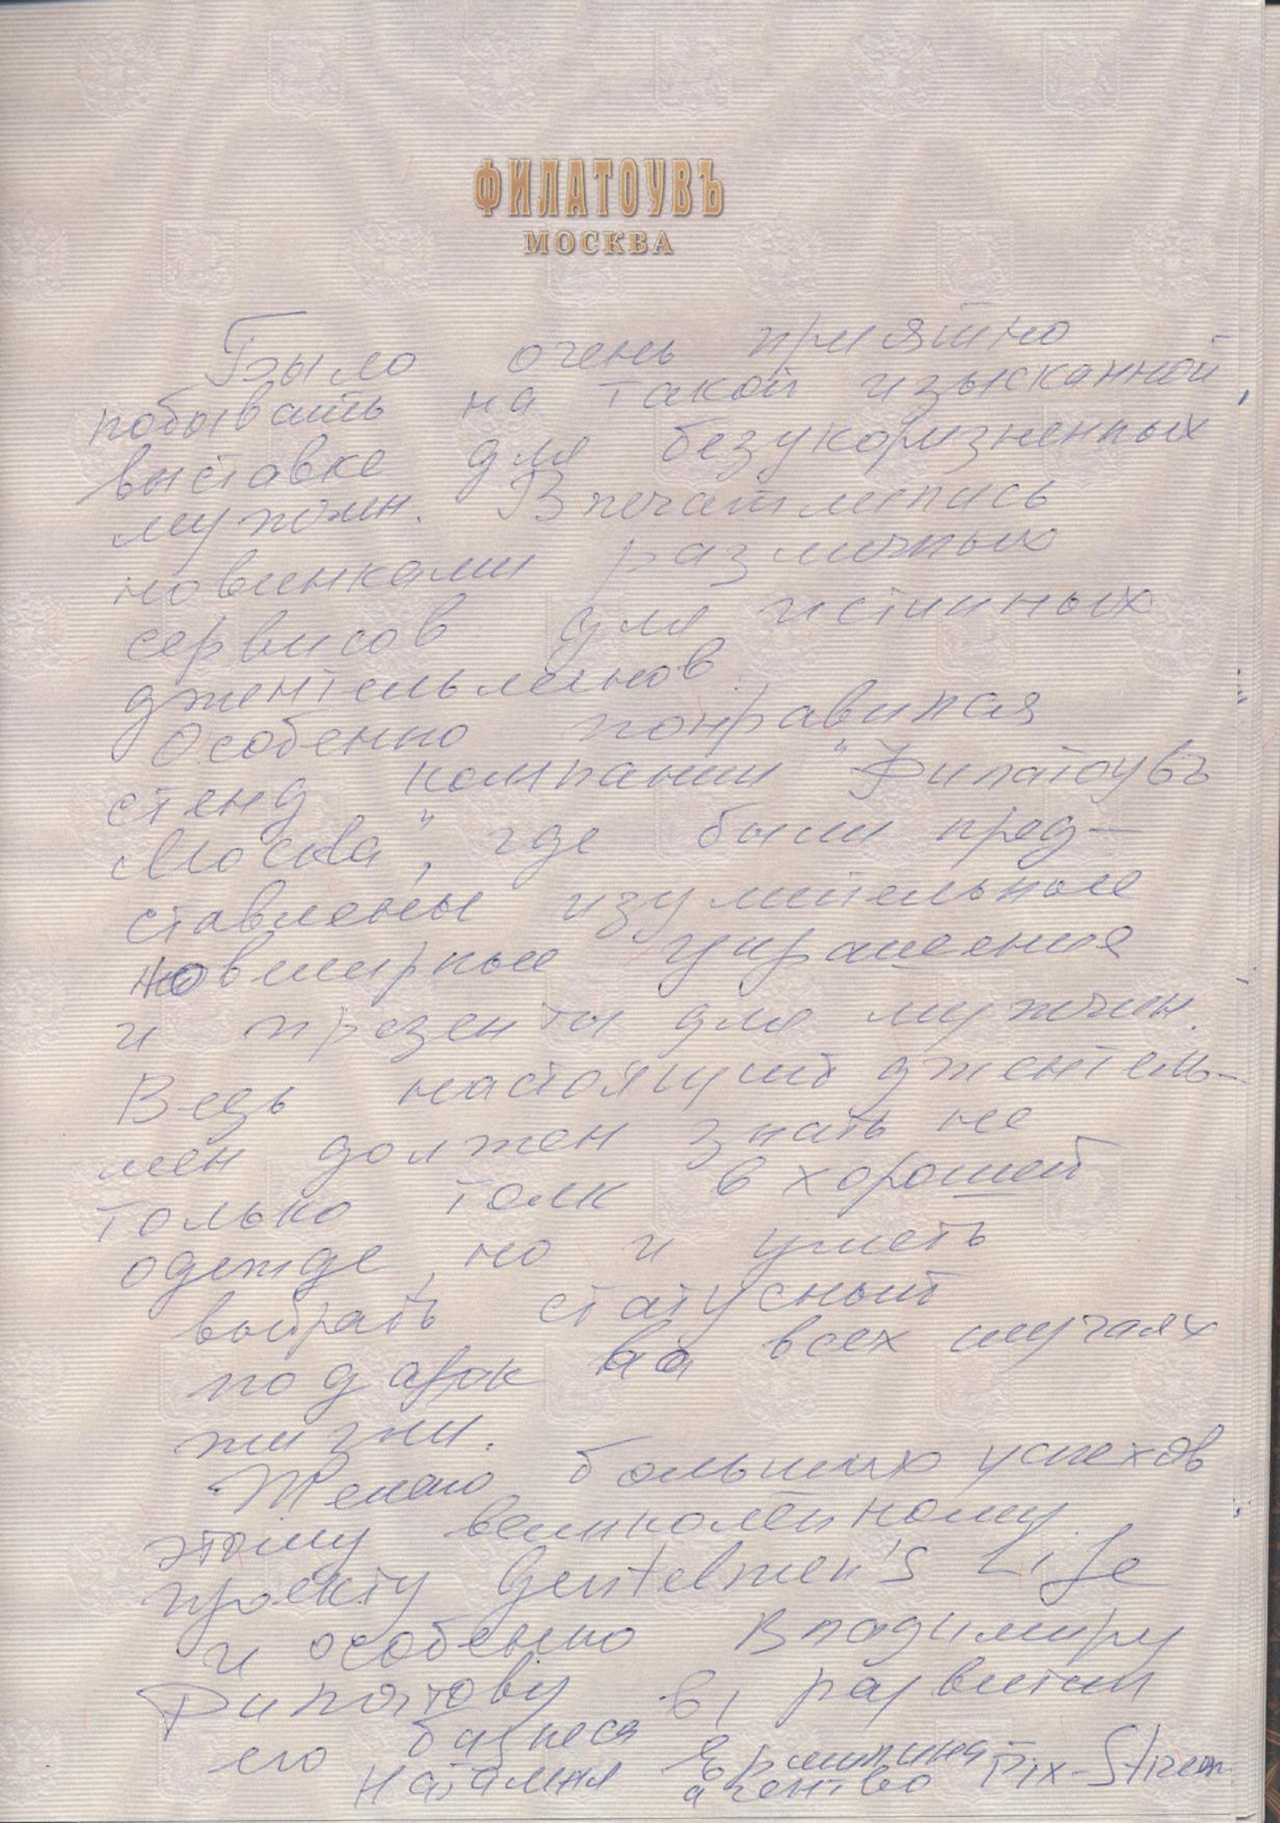 ФИЛАТОУВЪ
МОСКВА
Было очень приятно
побывать на такой изысканной
выставке для безукоризненных
мужчин. Впечатлилась
новинками различных
сервисов для истинных
джентельменов.
Особенно понравился
стенд компании "Филатоувъ
Москва", где были пред-
ставлены изумительные
ювелирные украшения
и презенты для мужчин.
Ведь настоящий джентель-
мен должен знать не
только толк в хорошей
одежде, но и уметь
выбрать статусный
подарок во всех случаях
жизни.
Желаю больших успехов
этому великолепному
проекту Gentelmen's Life
и особенно Владимиру
Филатову в развитии
его бизнеса
Наталия
агентство Pix-Stream